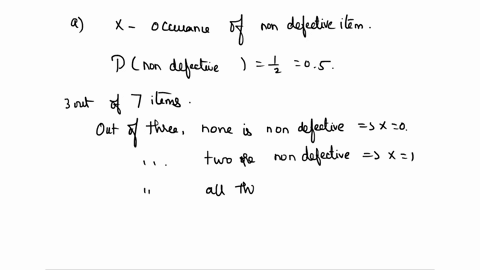 a) X - Occurance of non defective item.
P(non defective ) = 1/2 = 0.5.
3 out of 7 items.
Out of three, none is non defective => X=0.
,, . two are non defective => X=1
,, all th